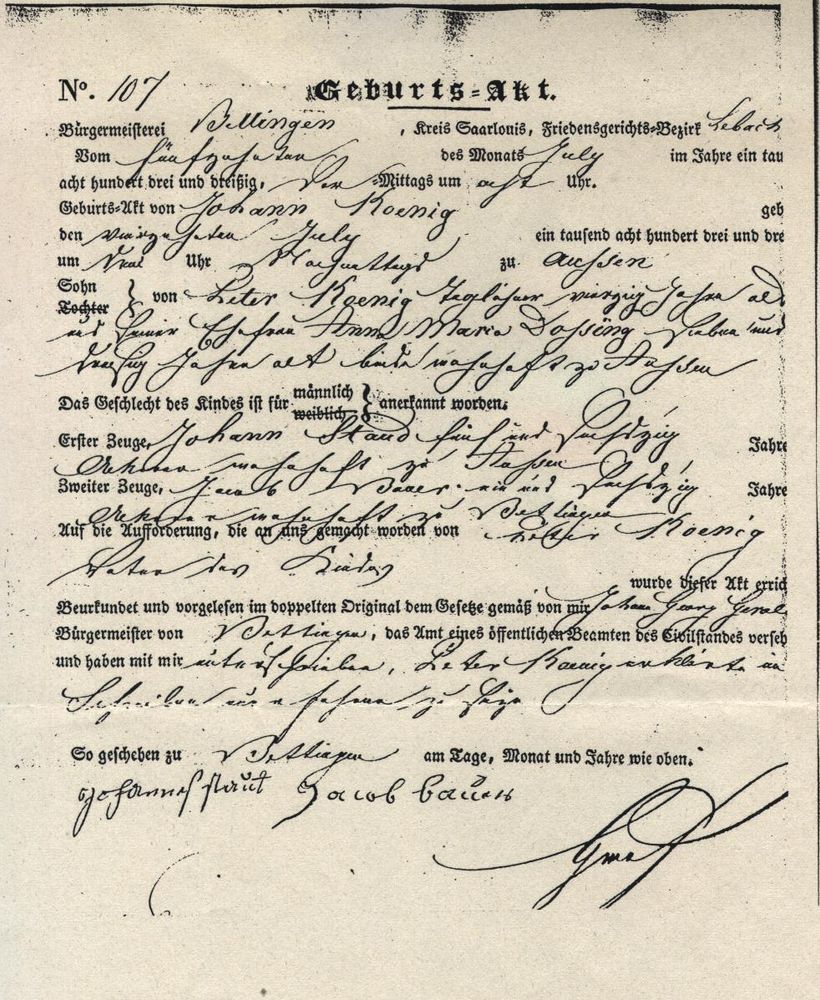 No. 107 Geburts-Akt.
Bürgermeisterei Bettingen, Kreis Saarlouis, Friedensgerichts-Bezirk Lebach
Vom fünfzehnten des Monats July im Jahre ein tau
acht hundert drei und dreißig, Vor-Mittags um acht Uhr.
Geburts-Akt von Johann Koenig geb
den vierzehnten July ein tausend acht hundert drei und dre
um drei Uhr Nachmittags zu Aussen
Sohn
Tochter } von Peter Koenig Taglöhner vierzig Jahre alt
und seiner Ehefrau Anna Maria Dossing sieben und
dreißig Jahre alt beide wohnhaft zu Aussen
Das Geschlecht des Kindes ist für männlich
weiblich } anerkannt worden.
Erster Zeuge, Johann Staud fünf und sechszig Jahre
Ackerer wohnhaft zu Aussen
Zweiter Zeuge, Jacob Bauer ein und sechszig Jahre
Ackerer wohnhaft zu Bettingen
Auf die Aufforderung, die an uns gemacht worden von Peter Koenig
Vater des Kindes
wurde dieser Akt errich
Beurkundet und vorgelesen im doppelten Original dem Gesetze gemäß von mir Johann Georg
Bürgermeister von Bettingen, das Amt eines öffentlichen Beamten des Civilstandes verseh
und haben mit mir unterschrieben, Peter Koenig erklärte im
Schreiben unerfahren zu sein
So geschehen zu Bettingen am Tage, Monat und Jahre wie oben.
Johannes staut Jacob bauer